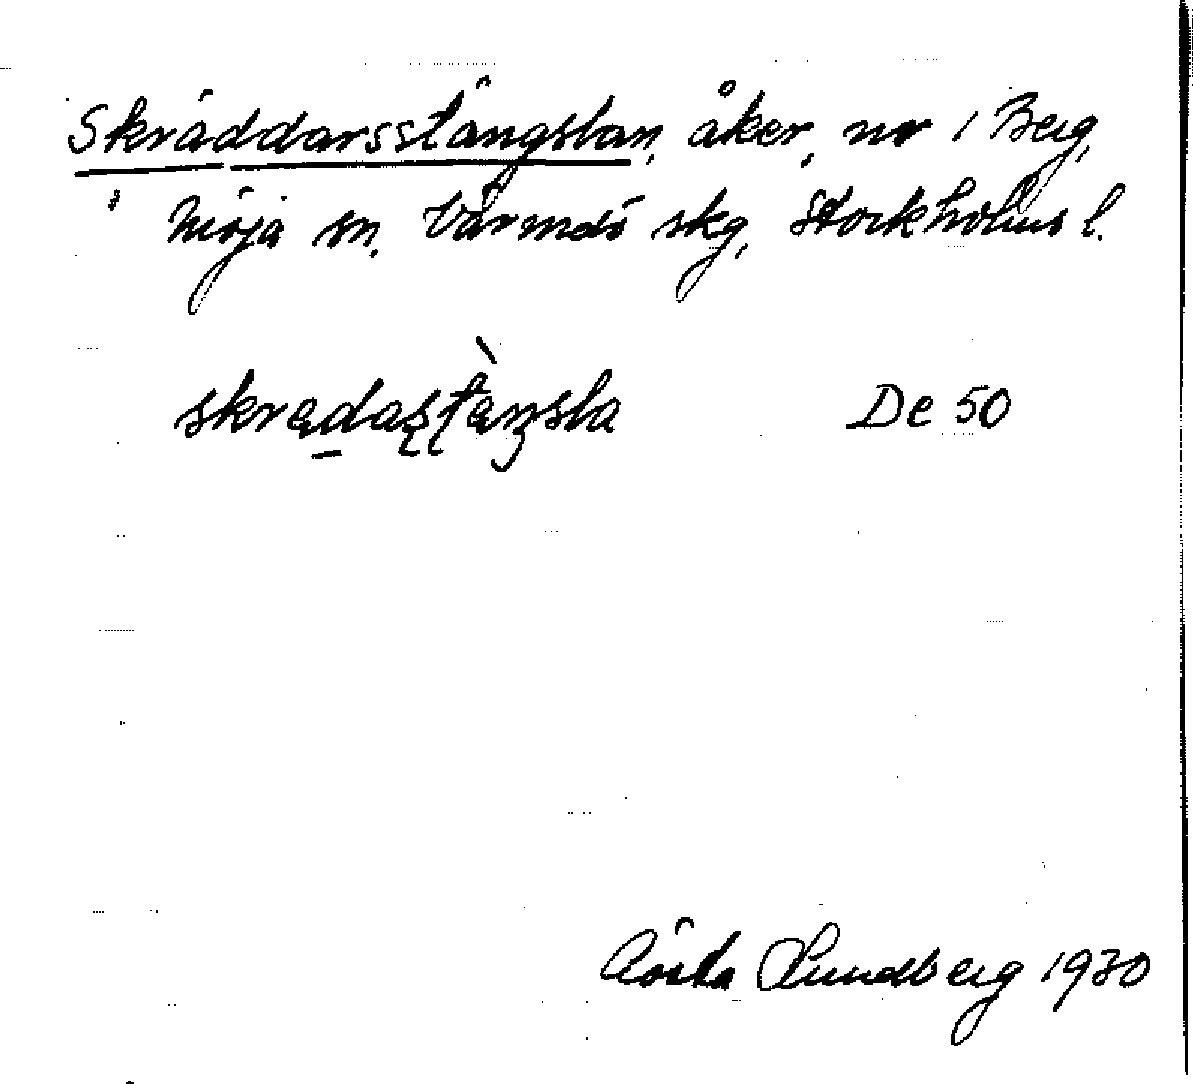 Skräddarsstängslan, åker, nr 1 Berg,
Möja sn, Värmdö skg, Stockholms l.
skrędas̨tànsla De 50
Gösta Sundberg 1930